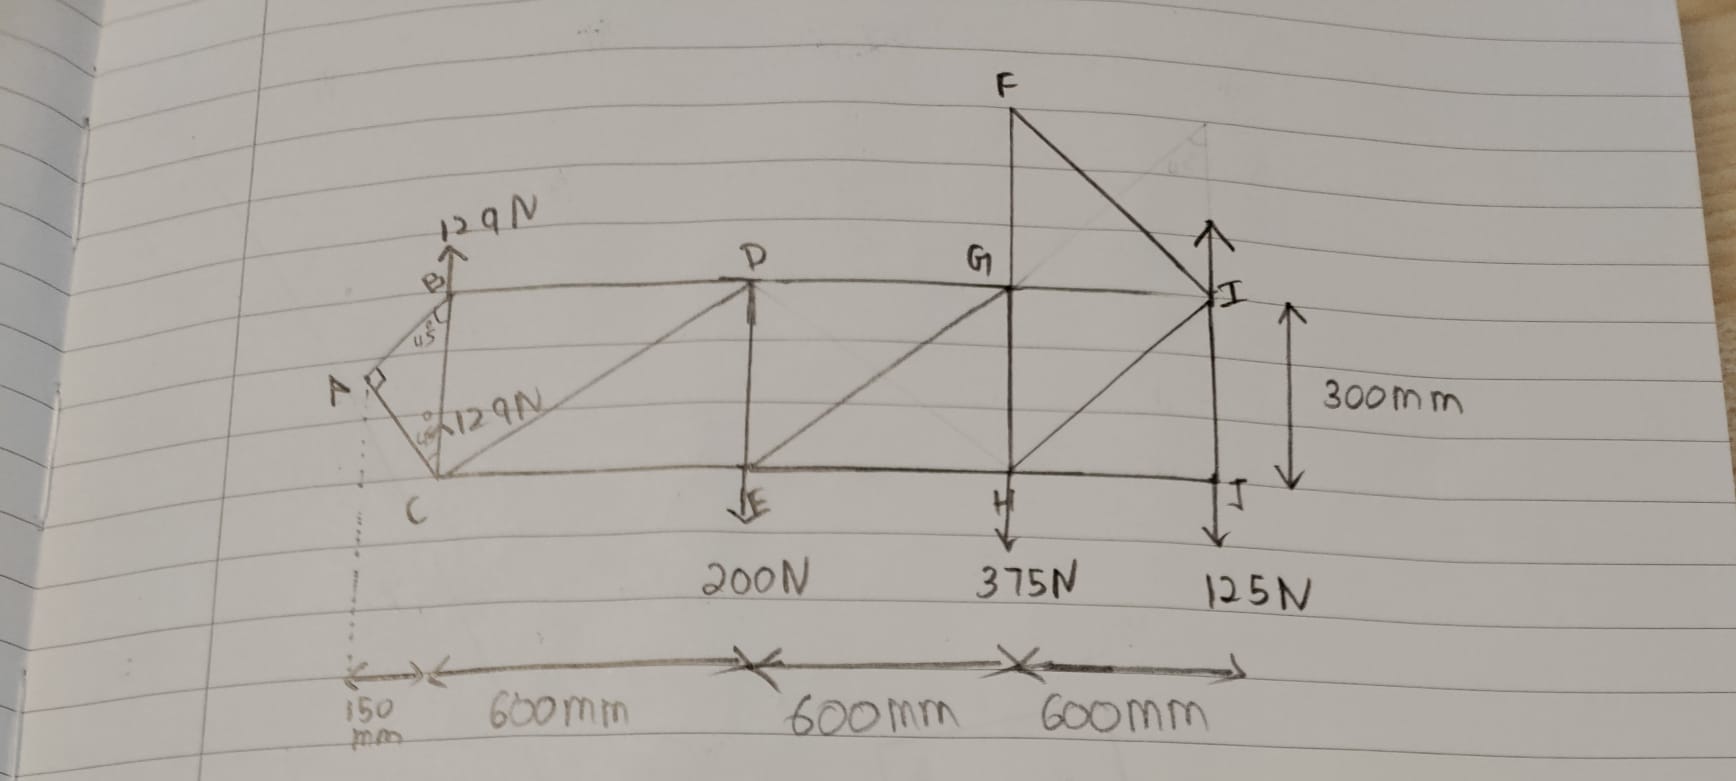 F
129N
B
D
G
I
45°
A
129N
300mm
C
E
H
J
200N
375N
125N
150
mm
600mm
600mm
600mm